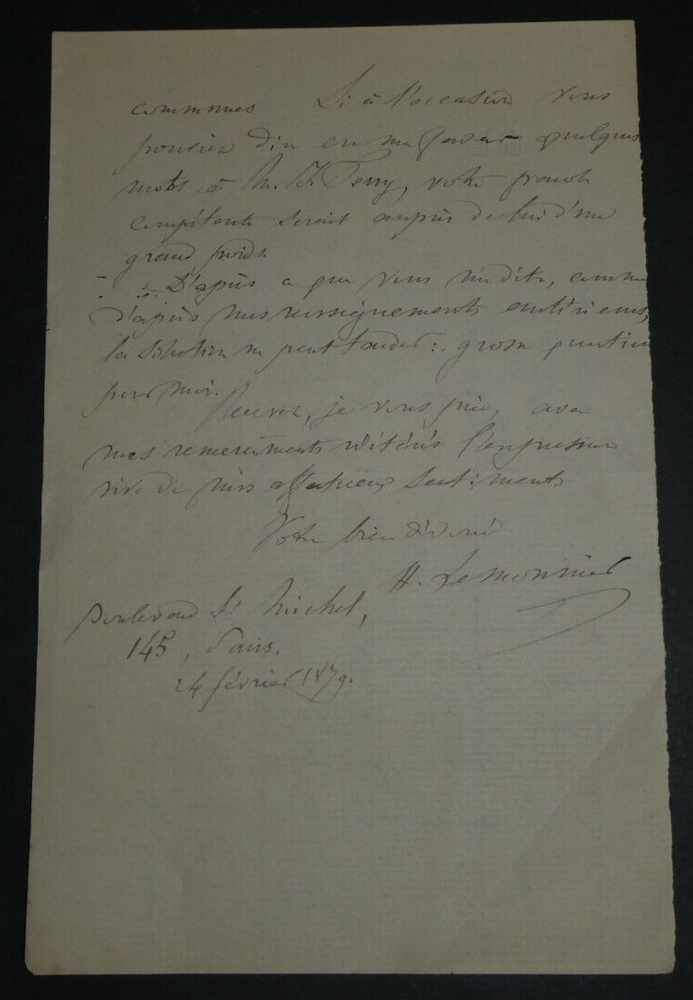 communes Si à l'occasion vous
pouviez dire en ma faveur quelques
mots à M. J. Ferry, votre
compétente serait auprès de lui d'un
grand poids.
D'après ce que vous me dites, comme
d'après mes renseignements antérieurs,
la solution ne peut tarder : grosse question
pour moi.
Recevez, je vous prie, avec
mes remerciments réitérés l'expression
vive de mes affectueux sentiments
Votre bien dévoué
H. Lemonnier
boulevard St Michel,
145, Paris.
24 février 1879.